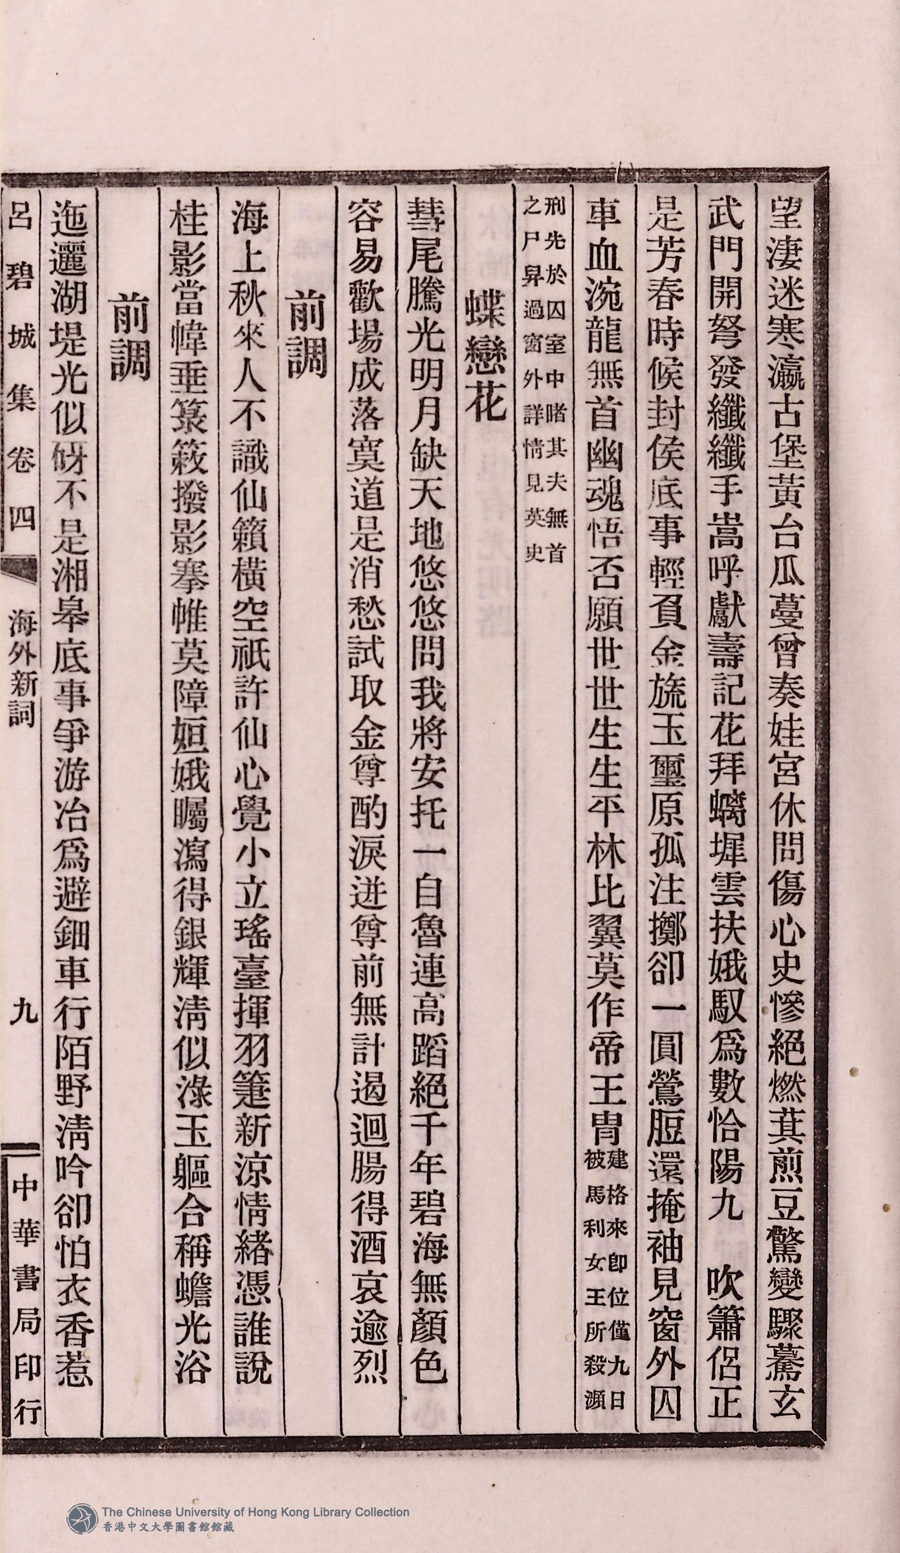 望淒迷寒瀛古堡黃台瓜蔓曾奏娃宮休問傷心史慘絕燃萁煎豆驚變驟驀玄
武門開弩發纖纖手嵩呼獻壽記花拜螭墀雲扶娥馭爲數恰陽九　吹簫侶正
是芳春時候封侯底事輕負金旒玉璽原孤注擲卻一圓鶯脰還掩袖見窗外囚
車血涴龍無首幽魂悟否願世世生生平林比翼莫作帝王胄
建格來卽位僅九日
被馬利女王所殺瀕
刑先於囚室中睹其夫無首
之尸舁過窗外詳情見英史
蝶戀花
彗尾騰光明月缺天地悠悠問我將安托一自魯連高蹈絕千年碧海無顏色
容易歡場成落寞道是消愁試取金尊酌淚迸尊前無計遏迴腸得酒哀逾烈
前調
海上秋來人不識仙籟橫空祇許仙心覺小立瑤臺揮羽箑新涼情緒憑誰說
桂影當幃垂箓簌撥影搴帷莫障姮娥矚瀉得銀輝淸似淥玉軀合稱蟾光浴
前調
迤邐湖堤光似砑不是湘皋底事爭游冶爲避鈿車行陌野淸吟卻怕衣香惹
呂碧城集卷四
海外新詞
九
中華書局印行
The Chinese University of Hong Kong Library Collection
香港中文大學圖書館館藏